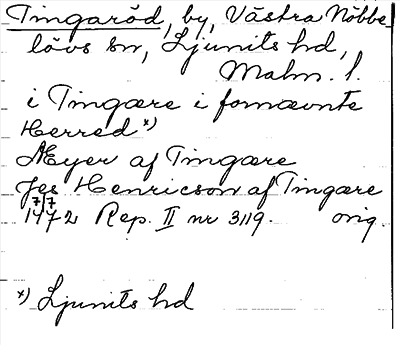 Tingaröd, by, Västra Nöbbe-
lövs sn, Ljunits hd,
Malm. l.
i Tingære i fornævnte
Herred x)
Meyer af Tingære
Jes Henricson af Tingære
7/7
1472 Rep. II nr 3119. orig.
x) Ljunits hd